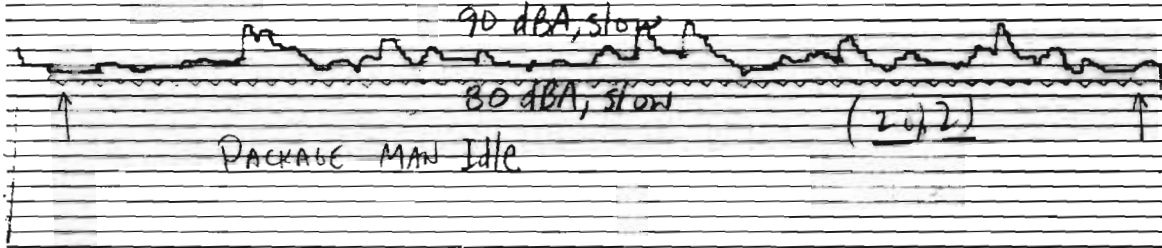 90 dBA, slow
80 dBA, slow
(2 of 2)
PACKAGE MAN Idle